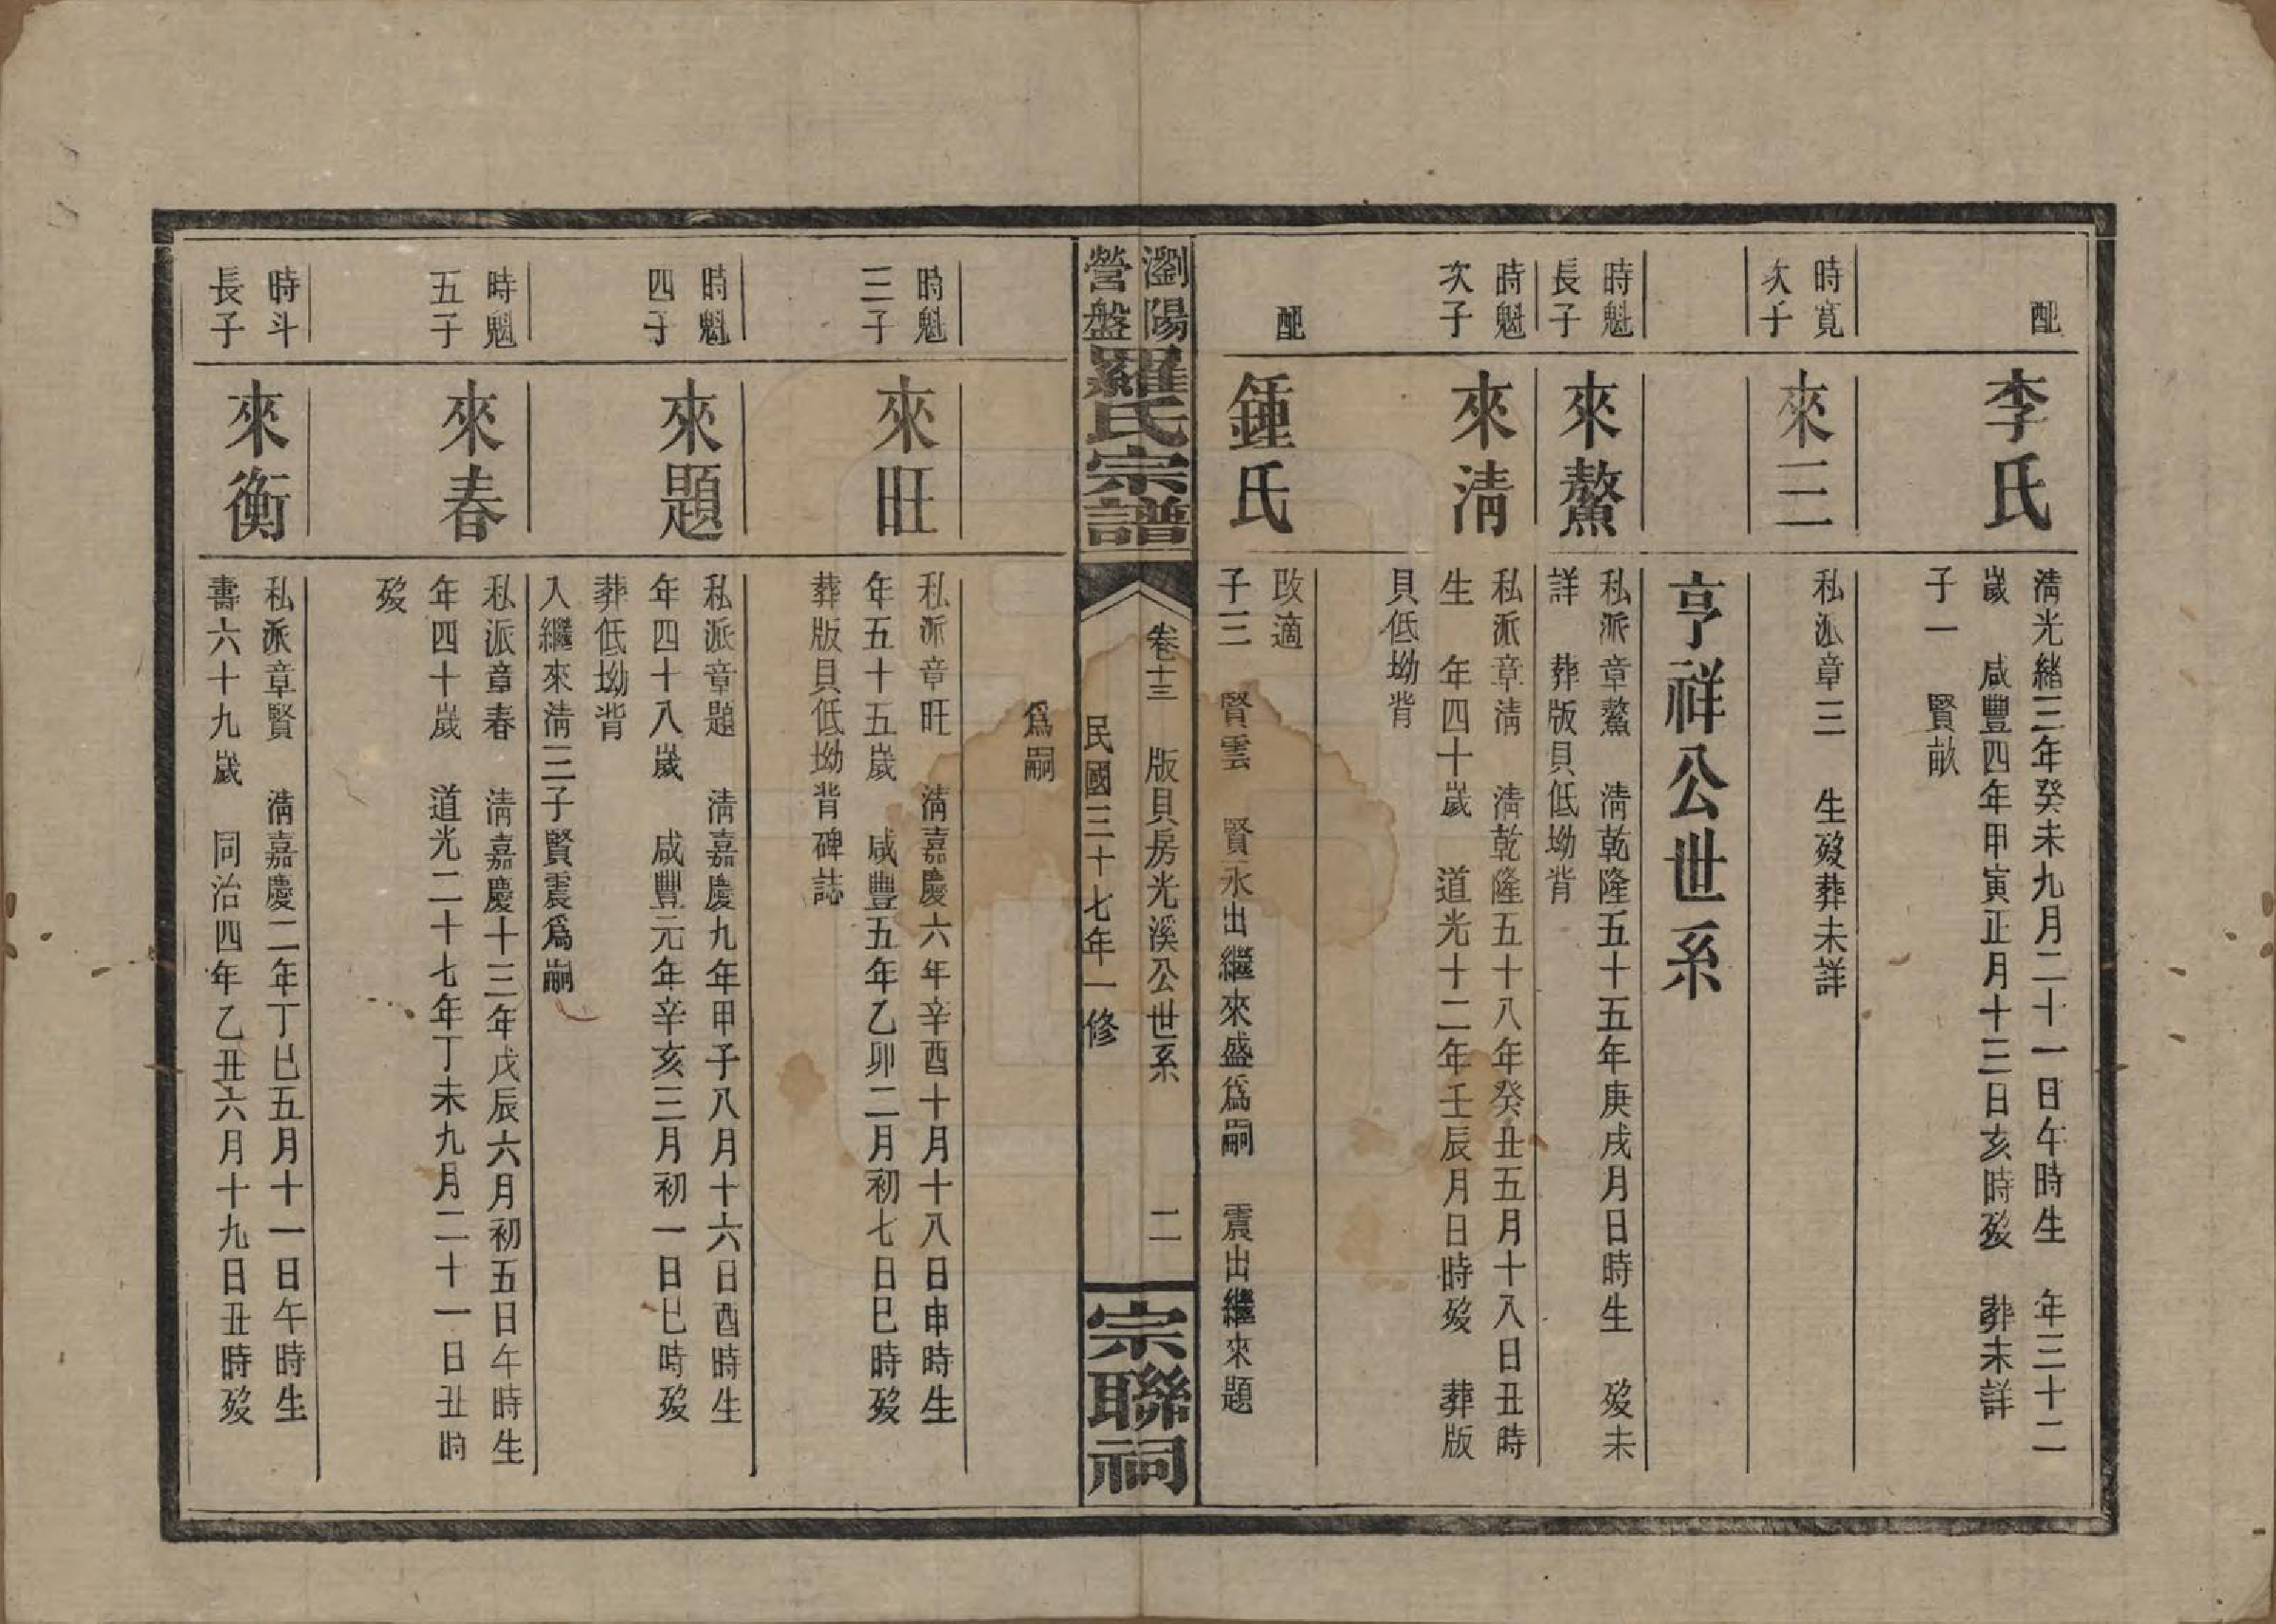 配
李氏
淸光緖三年癸未九月二十一日午時生　年三十二
歲　咸豐四年甲寅正月十三日亥時歿　葬未詳
子一　賢畝
時寬
次子
來三
私派章三　生歿葬未詳
亨祥公世系
時魁
長子
來鰲
私派章鰲　淸乾隆五十五年庚戌月日時生　歿未
詳　葬版貝低坳背
時魁
次子
來淸
私派章淸　淸乾隆五十八年癸丑五月十八日丑時
生　年四十歲　道光十二年壬辰月日時歿　葬版
貝低坳背
配
鍾氏
改適
子三　賢雲　賢永出繼來盛爲嗣　震出繼來題
瀏陽
營盤
羅氏宗譜
卷十三　版貝房光溪公世系　二
民國三十七年一修
宗聯祠
爲嗣
時魁
三子
來旺
私派章旺　淸嘉慶六年辛酉十月十八日申時生
年五十五歲　咸豐五年乙卯二月初七日巳時歿
葬版貝低坳背碑誌
時魁
四子
來題
私派章題　淸嘉慶九年甲子八月十六日酉時生
年四十八歲　咸豐元年辛亥三月初一日巳時歿
葬低坳背
入繼來淸三子賢震爲嗣
時魁
五子
來春
私派章春　淸嘉慶十三年戊辰六月初五日午時生
年四十歲　道光二十七年丁未九月二十一日丑時
歿
時斗
長子
來衡
私派章賢　淸嘉慶二年丁巳五月十一日午時生
壽六十九歲　同治四年乙丑六月十九日丑時歿